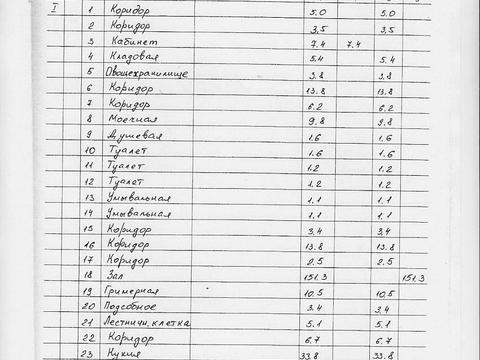 I 1 Коридор 5.0 5.0
2 Коридор 3,5 3,5
3 Кабинет 7.4 7.4
4 Кладовая 5.4 5.4
5 Овощехранилище 3.8 3.8
6 Коридор 13.8 13.8
7 Коридор 6.2 6.2
8 Моечная 9.8 9.8
9 Душевая 1.6 1.6
10 Туалет 1.6 1.6
11 Туалет 1.2 1.2
12 Туалет 1.2 1.2
13 Умывальная 1.1 1.1
14 Умывальная 1.1 1.1
15 Коридор 3,4 3,4
16 Коридор 13.8 13.8
17 Коридор 2.5 2.5
18 Зал 151.3 151.3
19 Гримерная 10,5 10,5
20 Подсобное 3.4 3.4
21 Лестничн. клетка 5.1 5.1
22 Коридор 6.7 6.7
23 Кухня 33.8 33.8